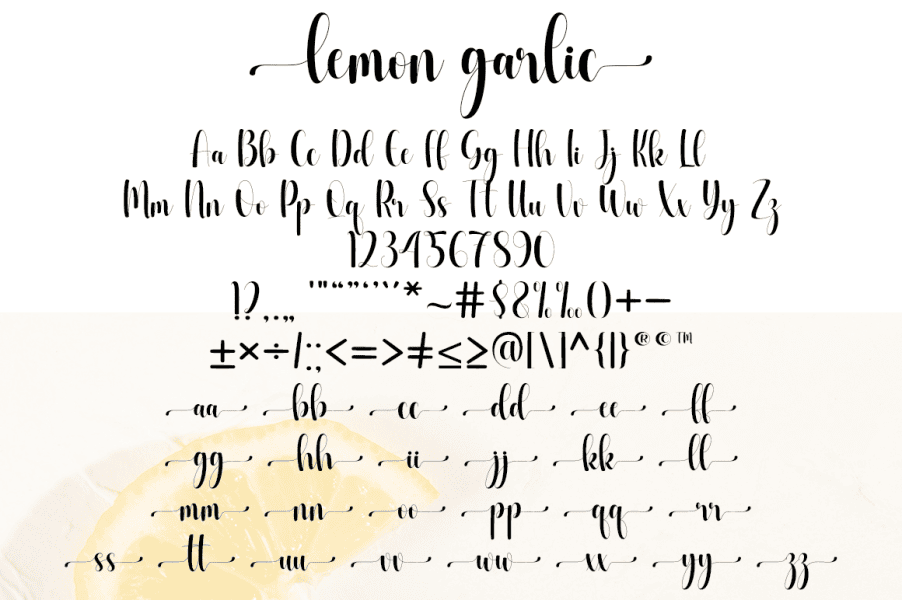 lemon garlic
Aa Bb Cc Dd Ee Ff Gg Hh Ii Jj Kk Ll
Mm Nn Oo Pp Qq Rr Ss Tt Uu Vv Ww Xx Yy Zz
1234567890
!?,.„ '"“”‘’`*~#$&%‰()+−
±×÷/:;<=>≠≤≥@[\]^{|}®©™
aa bb cc dd ee ff
gg hh ii jj kk ll
mm nn oo pp qq rr
ss tt uu vv ww xx yy zz